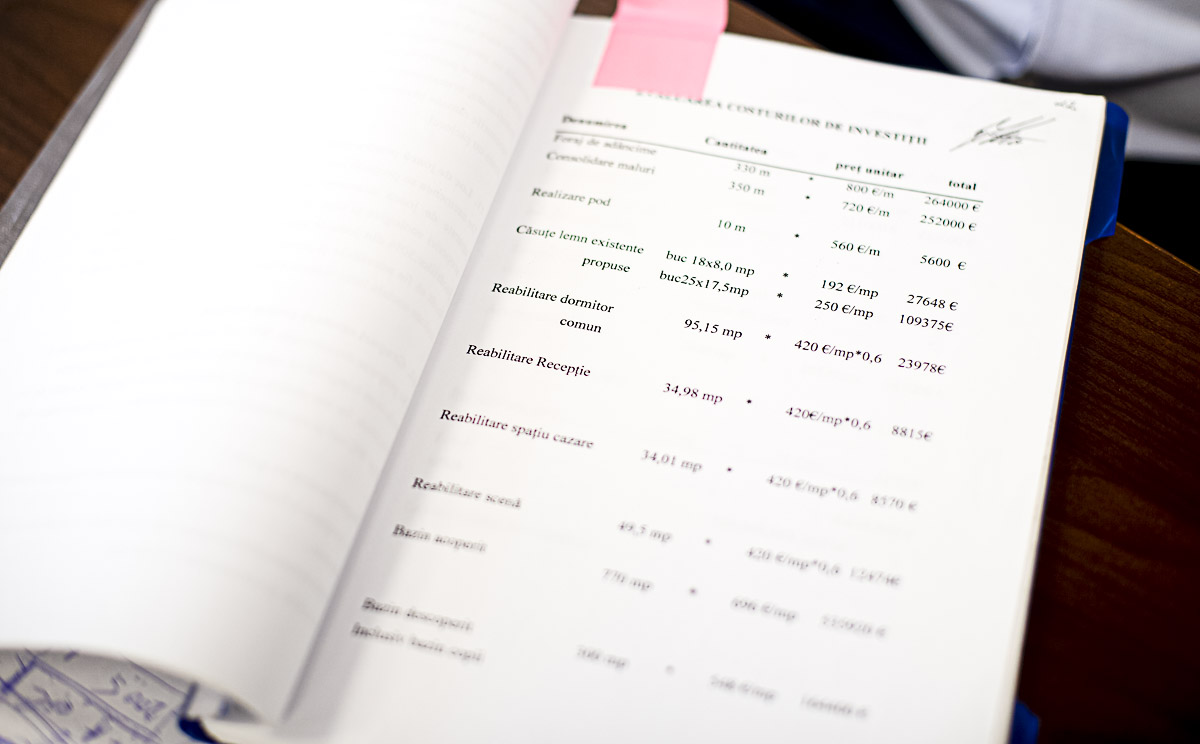 EVALUAREA COSTURILOR DE INVESTIȚII
Denumirea Cantitatea preț unitar total
Foraj de adâncime 330 m * 800 €/m 264000 €
Consolidare maluri 350 m * 720 €/m 252000 €
Realizare pod 10 m * 560 €/m 5600 €
Căsuțe lemn existente buc 18x8,0 mp * 192 €/mp 27648 €
propuse buc25x17,5mp * 250 €/mp 109375€
Reabilitare dormitor
comun 95,15 mp * 420 €/mp*0,6 23978€
Reabilitare Recepție
34,98 mp * 420€/mp*0,6 8815€
Reabilitare spațiu cazare
34,01 mp * 420 €/mp*0,6 8570 €
Reabilitare scenă
49,5 mp * 420 €/mp*0,6 12474€
Bazin acoperit
770 mp * €/mp €
Bazin descoperit
Inclusiv bazin copii
mp * €/mp €